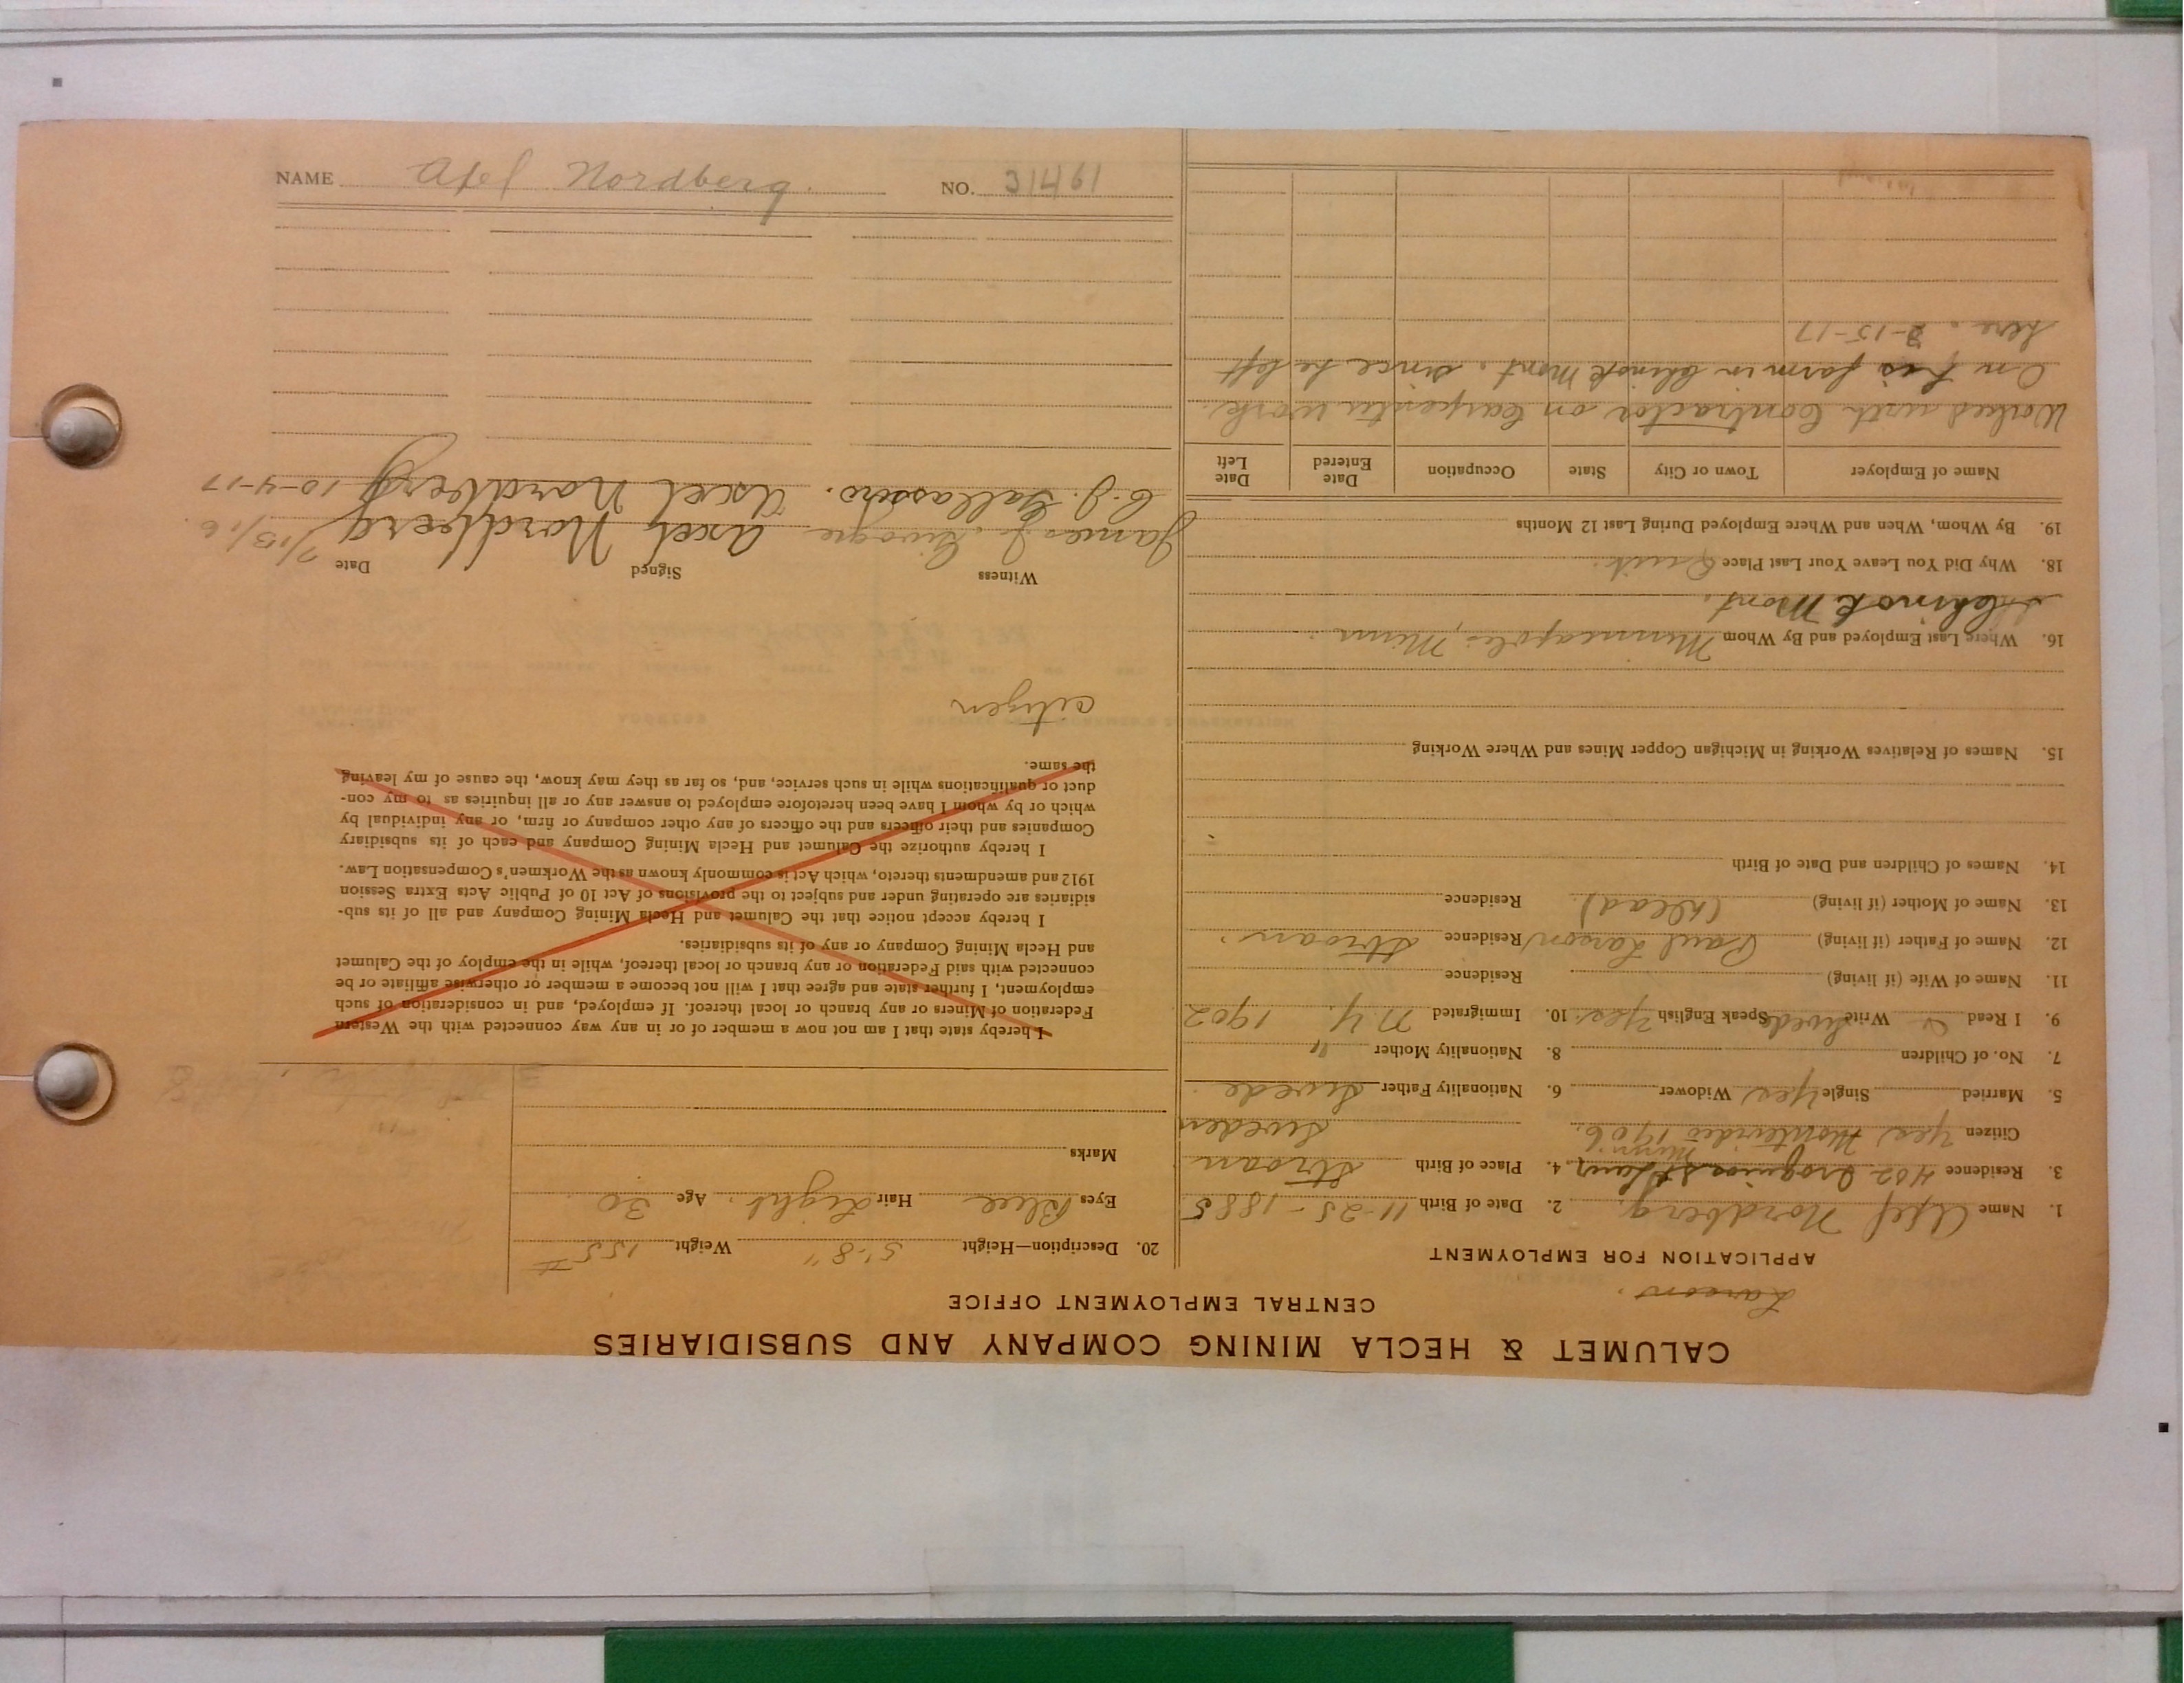 CALUMET & HECLA MINING COMPANY AND SUBSIDIARIES
CENTRAL EMPLOYMENT OFFICE
Larson.
APPLICATION FOR EMPLOYMENT
1. Name Axel Nordberg. 2. Date of Birth 11-25-1885
3. Residence 402 St Laur. 4. Place of Birth Stroan
Minn
Citizen Yes Montevideo 1906. Sweden
5. Married Single Yes Widower 6. Nationality Father Swede
7. No. of Children 8. Nationality Mother "
9. I Read & Write Swede Speak English Yes. 10. Immigrated N.Y. 1902
11. Name of Wife (if living) Residence
12. Name of Father (if living) Paul Larson Residence Stroan.
13. Name of Mother (if living) (dead) Residence
14. Names of Children and Date of Birth
15. Names of Relatives Working in Michigan Copper Mines and Where Working
16. Where Last Employed and By Whom Minneapolis, Minn.
Chinook Mont.
18. Why Did You Leave Your Last Place Quit.
19. By Whom, When and Where Employed During Last 12 Months
Name of Employer Town or City State Occupation Date Entered Date Left
Worked with Contractor on Carpenter work.
On his farm in Chinook Mont. since he left
here. 3-15-17
20. Description—Height 5'-8" Weight 155 #
Eyes Blue Hair Light. Age 30
Marks
I hereby state that I am not now a member of or in any way connected with the Western
Federation of Miners or any branch or local thereof. If employed, and in consideration of such
employment, I further state and agree that I will not become a member or otherwise affiliate or be
connected with said Federation or any branch or local thereof, while in the employ of the Calumet
and Hecla Mining Company or any of its subsidiaries.
I hereby accept notice that the Calumet and Hecla Mining Company and all of its sub-
sidiaries are operating under and subject to the provisions of Act 10 of Public Acts Extra Session
1912 and amendments thereto, which Act is commonly known as the Workmen's Compensation Law.
I hereby authorize the Calumet and Hecla Mining Company and each of its subsidiary
Companies and their officers and the officers of any other company or firm, or any individual by
which or by whom I have been heretofore employed to answer any or all inquiries as to my con-
duct or qualifications while in such service, and, so far as they may know, the cause of my leaving
the same.
citizen
Witness Signed Date
James J. Axel Nordberg 7/13/16.
C. J. Axel Nordberg 10-4-17
NAME Axel Nordberg. NO. 31461